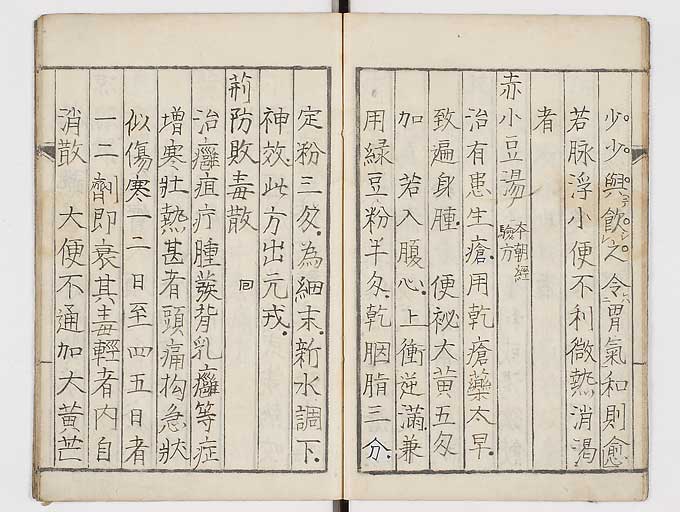 少少與飲之令胃氣和則愈
若脉浮小便不利微熱消渴
者
赤小豆湯 本朝經驗方
治有患生瘡用乾瘡藥太早
致遍身腫 便祕大黃五匁
加 若入腹心上衝逆滿兼
用緑豆粉半匁乾胭脂三分
定粉三匁為細末新水調下
神效此方出元戎
荊防敗毒散 囘
治癰疽疔腫發背乳癰等症
增寒壯熱甚者頭痛拘急狀
似傷寒一二日至四五日者
一二劑即衰其毒輕者內自
消散 大便不通加大黃芒